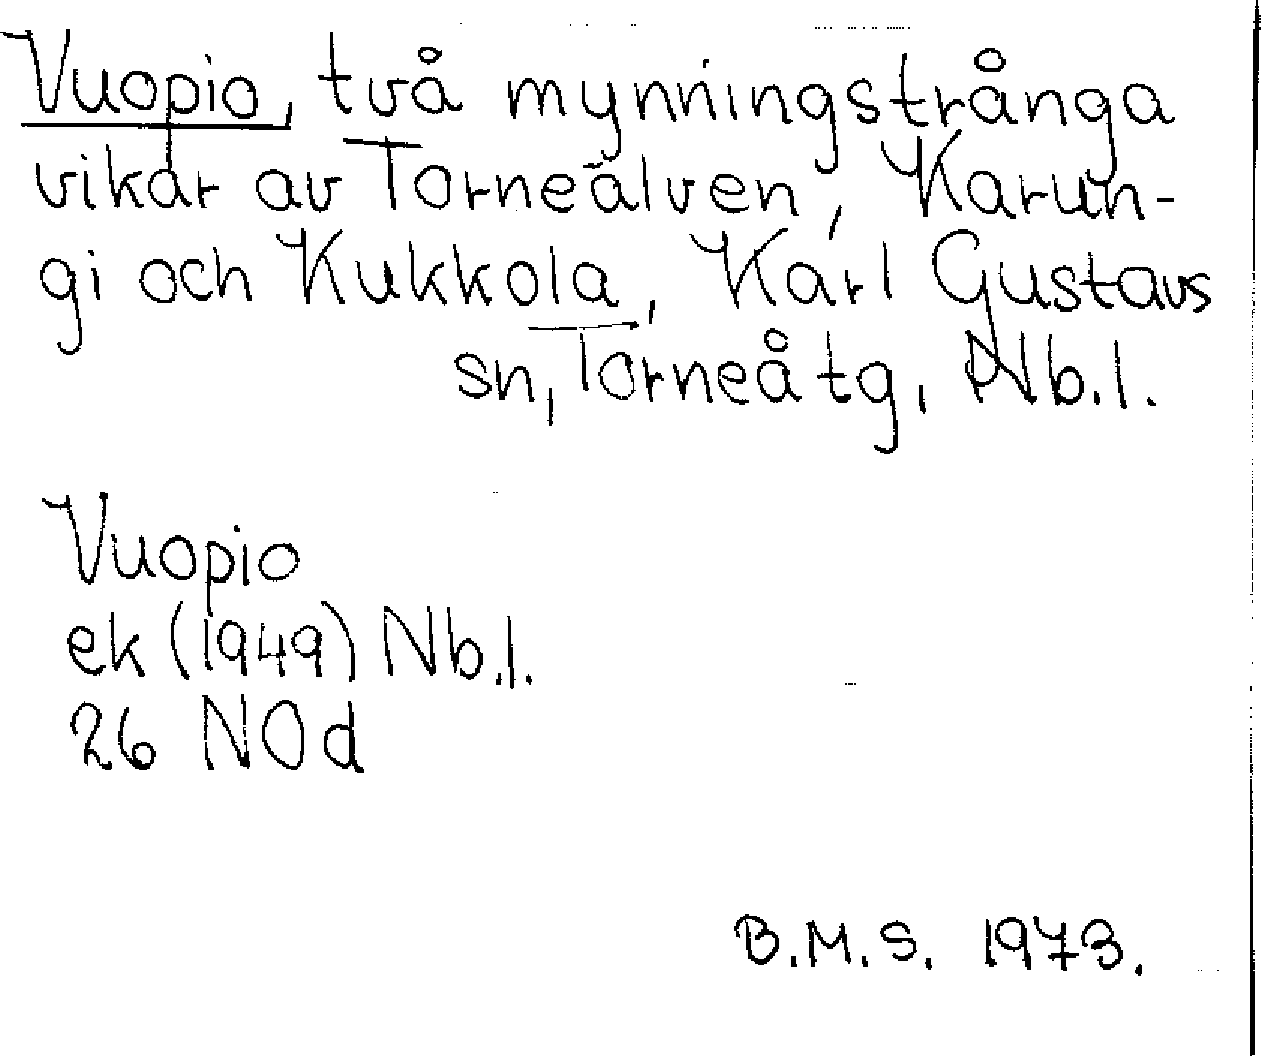 Vuopio, två mynningstrånga
vikar av Torneälven, Karun-
gi och Kukkola, Karl Gustavs
sn, Torneå tg, Nb.l.
Vuopio
ek (1949) Nb.l.
26 NOd
B.M.S. 1973.